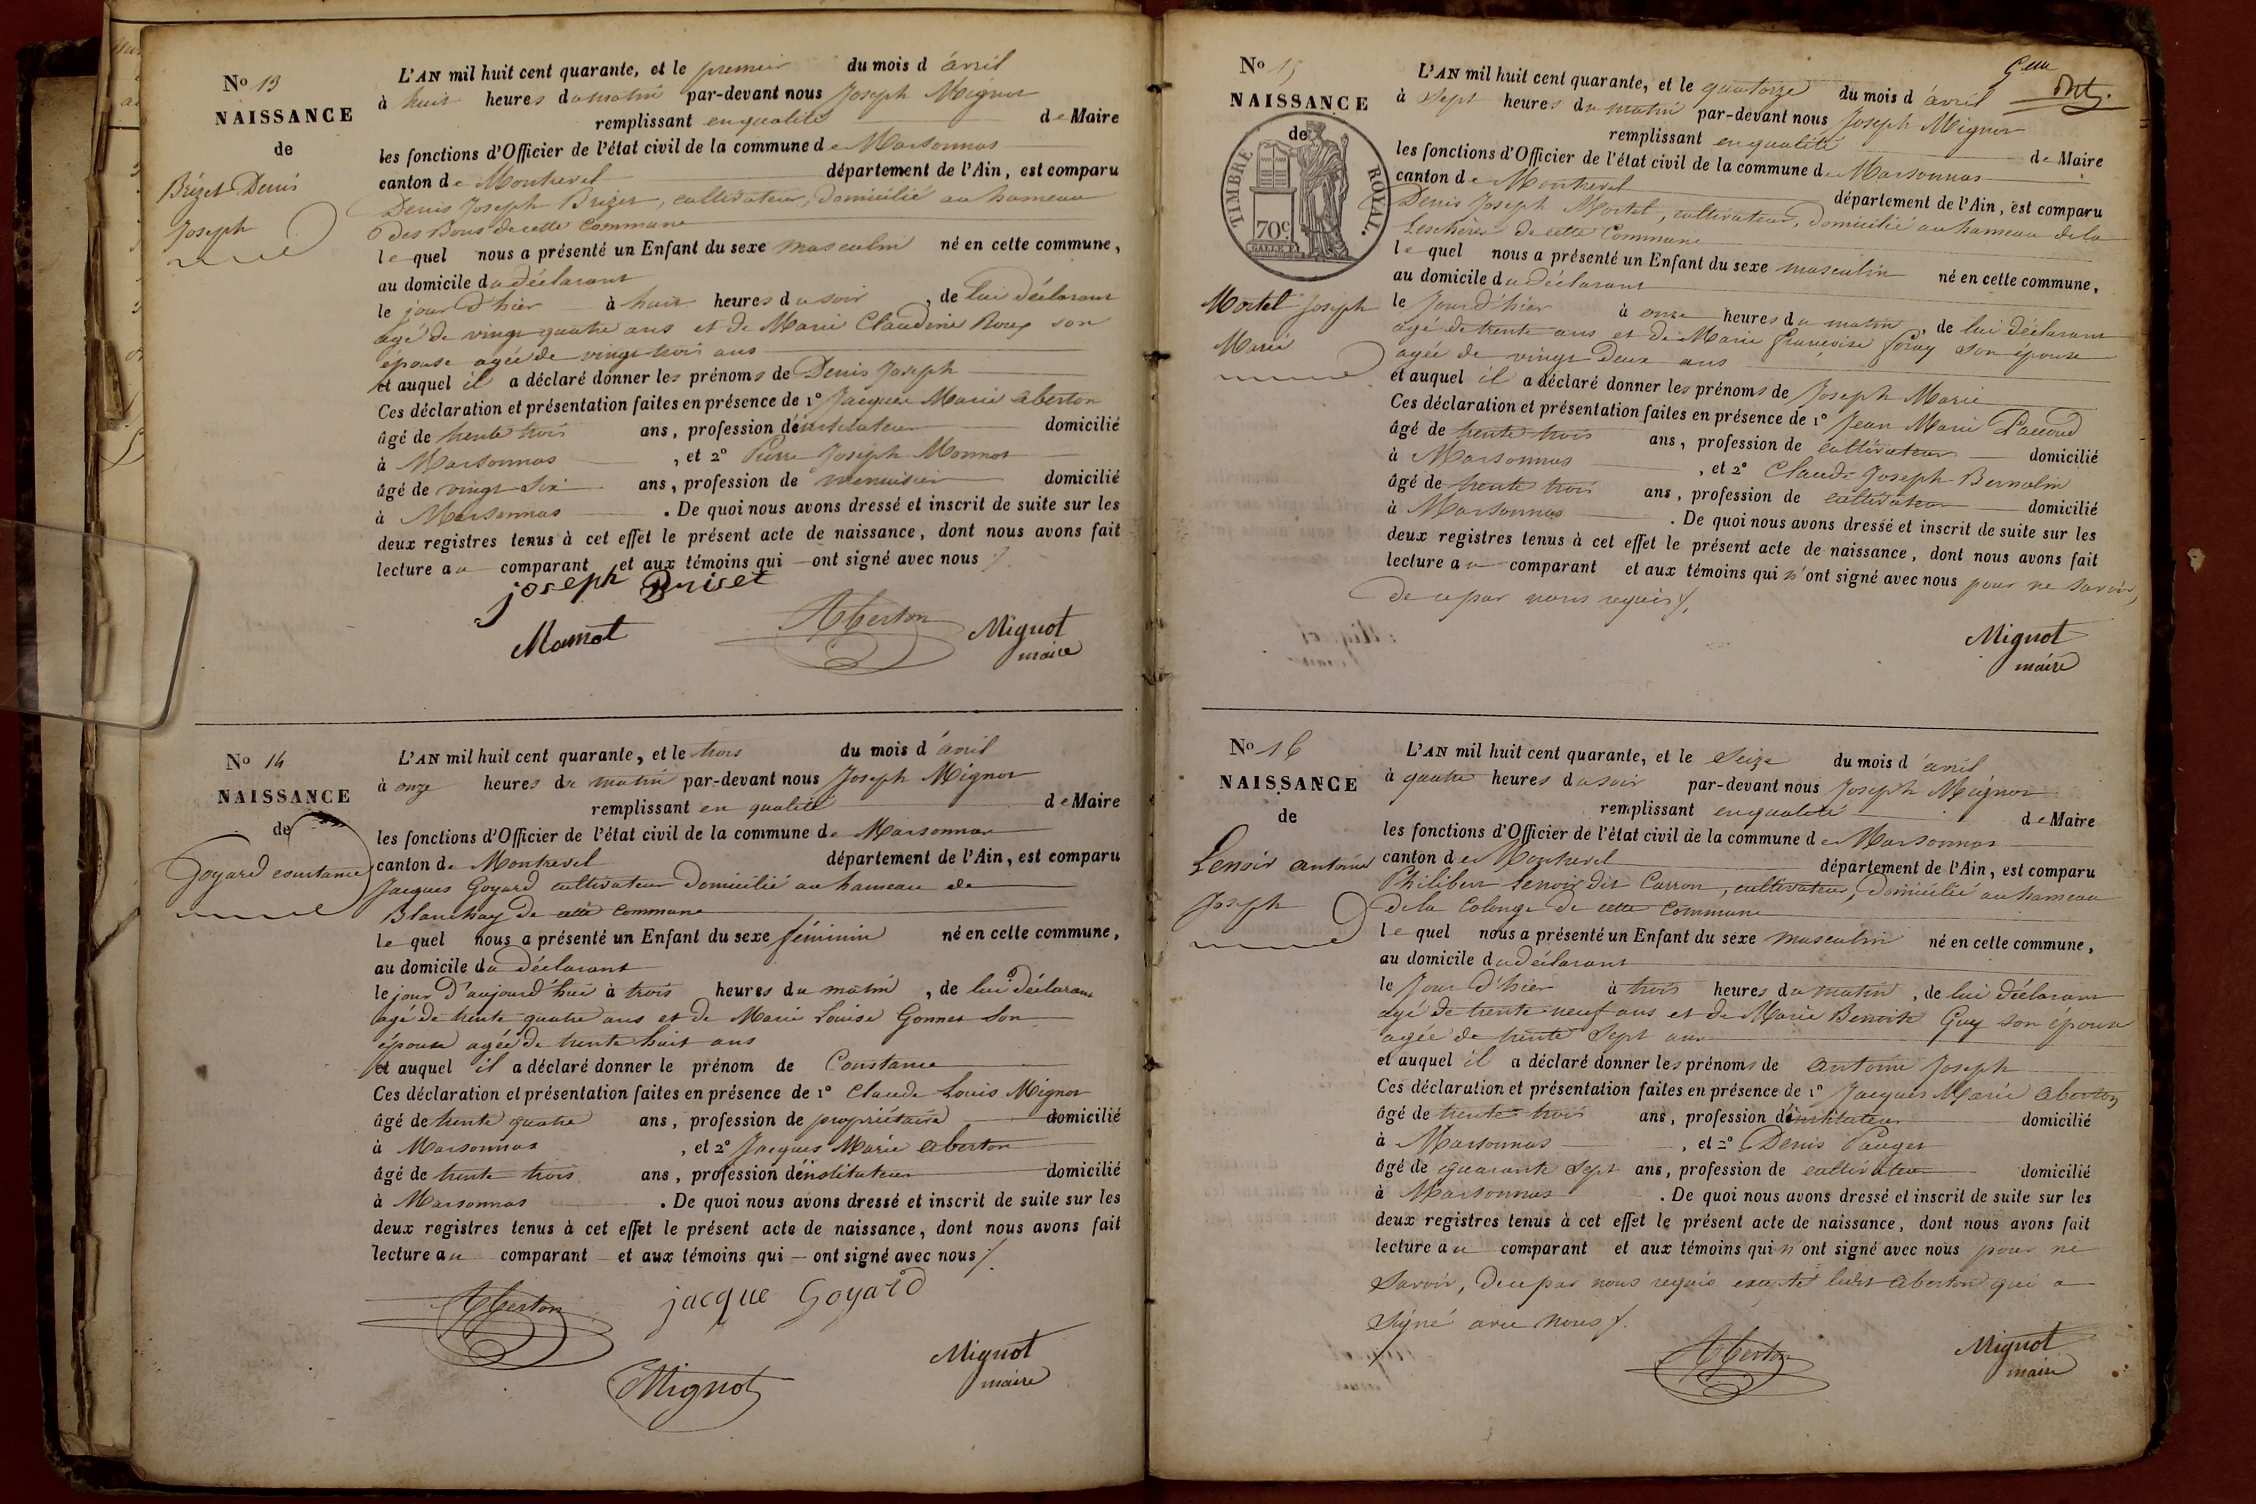 No 13
NAISSANCE
de
Brézet Denis
Joseph
L'AN mil huit cent quarante, et le premier du mois d'avril
à huit heures du matin par-devant nous Joseph Mignot
remplissant en qualité de Maire
les fonctions d'Officier de l'état civil de la commune de Marsonnas
canton de Montrevel département de l'Ain, est comparu
Denis Joseph Brizet, cultivateur, domicilié au hameau
des Bons de cette Commune
le quel nous a présenté un Enfant du sexe masculin né en cette commune,
au domicile du déclarant
le jour d'hier à huit heures du soir, de lui déclarant
agé de vingt quatre ans et de Marie Claudine Roux son
épouse agée de vingt trois ans
et auquel il a déclaré donner les prénoms de Denis Joseph
Ces déclaration et présentation faites en présence de 1° Jacques Marie Aberton
âgé de trente trois ans, profession d'instituteur domicilié
à Marsonnas, et 2° Pierre Joseph Monnot
âgé de vingt six ans, profession de menuisier domicilié
à Marsonnas. De quoi nous avons dressé et inscrit de suite sur les
deux registres tenus à cet effet le présent acte de naissance, dont nous avons fait
lecture au comparant et aux témoins qui ont signé avec nous
joseph Briset
Monnot Aberton Mignot
maire
No 14
NAISSANCE
de
Goyard constance
L'AN mil huit cent quarante, et le trois du mois d'avril
à onze heures du matin par-devant nous Joseph Mignot
remplissant en qualité de Maire
les fonctions d'Officier de l'état civil de la commune de Marsonnas
canton de Montrevel département de l'Ain, est comparu
Jacques Goyard cultivateur Domicilié au hameau de
Blanchay de cette Commune
le quel nous a présenté un Enfant du sexe féminin né en cette commune,
au domicile du déclarant
le jour d'aujourd'hui à trois heures du matin, de lui déclarant
agé de trente quatre ans et de Marie Louise Gonnet son
épouse agée de trente huit ans
et auquel il a déclaré donner le prénom de Constance
Ces déclaration et présentation faites en présence de 1° Claude Louis Mignot
âgé de trente quatre ans, profession de propriétaire domicilié
à Marsonnas, et 2° Jacques Marie Aberton
âgé de trente trois ans, profession d'instituteur domicilié
à Marsonnas. De quoi nous avons dressé et inscrit de suite sur les
deux registres tenus à cet effet le présent acte de naissance, dont nous avons fait
lecture au comparant et aux témoins qui ont signé avec nous
Aberton jacque Goyard
Mignot Mignot
maire
No 15
NAISSANCE
de
TIMBRE ROYAL.
70c
Mortel Joseph
Marie
L'AN mil huit cent quarante, et le quatorze du mois d'avril
à sept heures du matin par-devant nous Joseph Mignot
remplissant en qualité de Maire
les fonctions d'Officier de l'état civil de la commune de Marsonnas
canton de Montrevel département de l'Ain, est comparu
Denis Joseph Mortel, cultivateur, domicilié au hameau de la
Leschère de cette Commune
le quel nous a présenté un Enfant du sexe masculin né en cette commune,
au domicile du déclarant
le jour d'hier à onze heures du matin, de lui déclarant
agé de trente ans et de Marie Françoise Foray son épouse
agée de vingt deux ans
et auquel il a déclaré donner les prénoms de Joseph Marie
Ces déclaration et présentation faites en présence de 1° Jean Marie Paccoud
âgé de trente trois ans, profession de cultivateur domicilié
à Marsonnas, et 2° Claude Joseph Bernolin
âgé de trente trois ans, profession de cultivateur domicilié
à Marsonnas. De quoi nous avons dressé et inscrit de suite sur les
deux registres tenus à cet effet le présent acte de naissance, dont nous avons fait
lecture au comparant et aux témoins qui n'ont signé avec nous pour ne savoir,
de ce par nous requis
Mignot
maire
No 16
NAISSANCE
de
Lenoir antoine
Joseph
L'AN mil huit cent quarante, et le seize du mois d'avril
à quatre heures du soir par-devant nous Joseph Mignot
remplissant en qualité de Maire
les fonctions d'Officier de l'état civil de la commune de Marsonnas
canton de Montrevel département de l'Ain, est comparu
Philibert Lenoir dit Carron, cultivateur, domicilié au hameau
de la Colonge de cette Commune
le quel nous a présenté un Enfant du sexe masculin né en cette commune,
au domicile du déclarant
le jour d'hier à trois heures du matin, de lui déclarant
agé de trente neuf ans et de Marie Benoite Guy son épouse
agée de trente sept ans
et auquel il a déclaré donner les prénoms de antoine Joseph
Ces déclaration et présentation faites en présence de 1° Jacques Marie Aberton
âgé de trente trois ans, profession d'instituteur domicilié
à Marsonnas, et 2° Denis Pauget
âgé de quarante sept ans, profession de cultivateur domicilié
à Marsonnas. De quoi nous avons dressé et inscrit de suite sur les
deux registres tenus à cet effet le présent acte de naissance, dont nous avons fait
lecture au comparant et aux témoins qui n'ont signé avec nous pour ne
savoir, de ce par nous requis excepté ledit Aberton qui a
signé avec nous
Aberton Mignot
maire